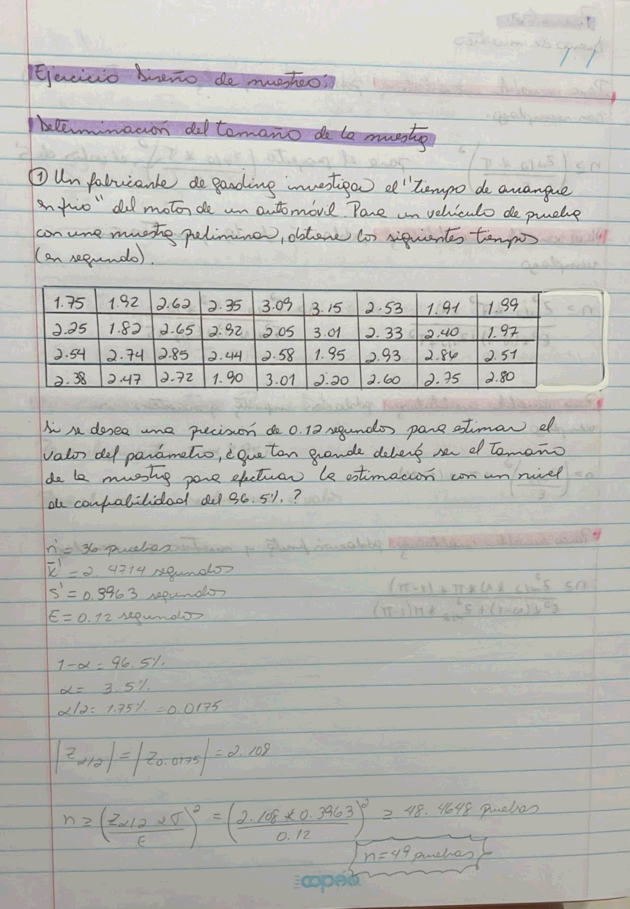 Ejercicio Diseño de muestreo:
Determinación del tamaño de la muestra
① Un fabricante de gasolina investiga el "tiempo de arranque
en frio" del motor de un automóvil. Para un vehículo de prueba
con una muestra preliminar, obtiene los siguientes tiempos
(en segundo).
1.75 1.92 2.62 2.35 3.09 3.15 2.53 1.91 1.99
2.25 1.82 2.65 2.92 2.05 3.01 2.33 2.40 1.97
2.54 2.74 2.85 2.44 2.58 1.95 2.93 2.86 2.51
2.38 2.47 2.72 1.90 3.01 2.20 2.60 2.75 2.80
Si se desea una precisión de 0.12 segundos para estimar el
valor del parámetro, ¿que tan grande deberá ser el tamaño
de la muestra para efectuar la estimación con un nivel
de confiabilidad del 96.5%.?
n' = 36 pruebas
x̄' = 2.4714 segundos
s' = 0.3963 segundos
E = 0.12 segundos
1-α = 96.5%
α = 3.5%
α/2 = 1.75% = 0.0175
|Zα/2| = |Z0.0175| = 2.108
n ≥ (Zα/2 * σ / E)² = (2.108 * 0.3963 / 0.12)² ≥ 48.4648 pruebas
n = 49 pruebas
copan